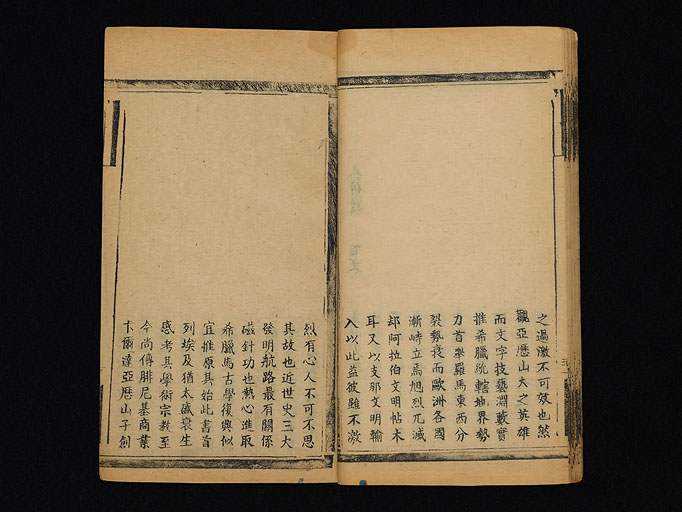 之過激不可效也然
觀亞歷山大之英雄
而文字技藝淵藪實
推希臘統轄地界勢
力首樂羅馬東西分
裂勢衰而歐洲各國
漸峙立焉旭烈兀滅
却阿拉伯文明帖木
耳又以支那文明輸
入以此益彼雖不激
烈有心人不可不思
其故也近世史三大
發明航路最有關係
磁針功也熱心進取
希臘馬古學復興似
宜推原其始此書首
列埃及猶太盛衰生
感考其學術宗教至
今尚傳腓尼基商業
卞爾達亞歷山子創